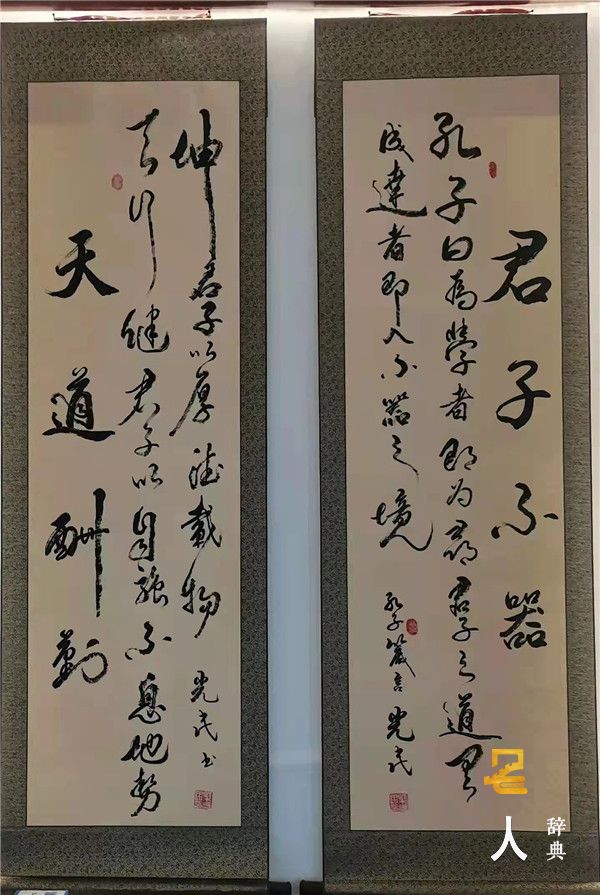 君子不器
孔子曰為學者即为尋君子之道
成達者即入不器之境
孔子箴言 光民
天道酬勤
天行健君子以自強不息地勢
坤君子以厚德載物 光民书
名人辞典